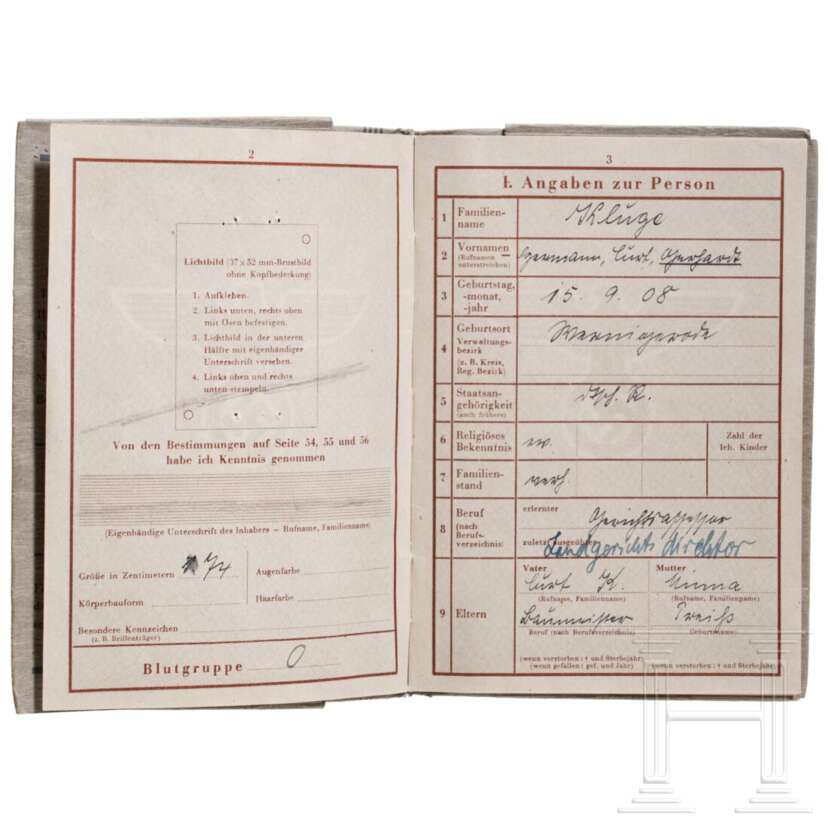 2
Lichtbild (37×52 mm-Brustbild
ohne Kopfbedeckung)
1. Aufkleben.
2. Links unten, rechts oben
mit Ösen befestigen.
3. Lichtbild in der unteren
Hälfte mit eigenhändiger
Unterschrift versehen.
4. Links oben und rechts
unten stempeln.
Von den Bestimmungen auf Seite 54, 55 und 56
habe ich Kenntnis genommen
(Eigenhändige Unterschrift des Inhabers – Rufname, Familienname)
Größe in Zentimetern 174 Augenfarbe
Körperbauform Haarfarbe
Besondere Kennzeichen
(z. B. Brillenträger)
Blutgruppe O
3
I. Angaben zur Person
1 Familien-
name Kluge
2 Vornamen
(Rufnamen
unterstreichen) Hermann, Curt, Gerhardt
3 Geburtstag,
-monat,
-jahr 15. 9. 08
4 Geburtsort
Verwaltungs-
bezirk
(z. B. Kreis,
Reg. Bezirk) Wernigerode
5 Staatsan-
gehörigkeit
(auch frühere) dtsch. R.
6 Religiöses
Bekenntnis ev.
Zahl der
leb. Kinder
7 Familien-
stand verh.
8 Beruf
(nach
Berufs-
verzeichnis)
erlernter Gerichtsassessor
zuletzt ausgeübter Landgerichtsdirektor
9 Eltern
Vater Mutter
Curt K. Minna
(Rufname, Familienname) (Rufname, Familienname)
Baumeister
Beruf (nach Berufsverzeichnis) Geburtsname)
(wenn verstorben: † und Sterbejahr)
(wenn gefallen: gef. und Jahr) (wenn verstorben: † und Sterbejahr)
H